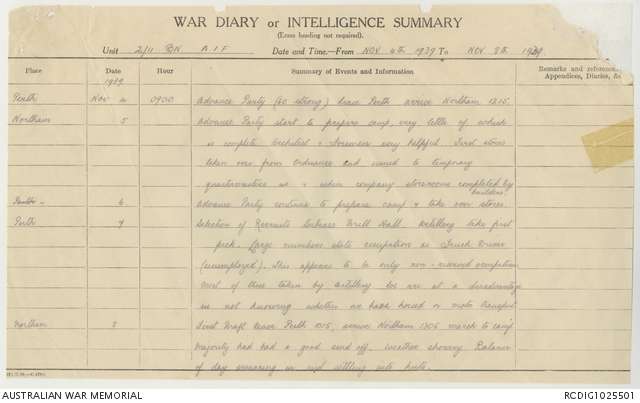 WAR DIARY or INTELLIGENCE SUMMARY
(Erase heading not required).
Unit 2/11 BN A I F Date and Time.—From NOV 4th 1939 To NOV 8th 1939
Place Date Hour Summary of Events and Information Remarks and references Appendices, Diaries, &c
1939
Perth Nov 4 0900 Advance Party (60 strong) leave Perth arrive Northam 1215.
Northam 5 Advance Party start to prepare camp, very little of which
is complete Architect & Foreman very helpful. First stores
taken over from Ordnance and issued to temporary
quartermasters as & when company storerooms completed by
builders.
6 Advance Party continue to prepare camp & take over stores.
Perth 7 Selection of Recruits Drill Hall. Artillery take first
pick. Large numbers state occupation as Truck Driver
(unemployed). This appears to be only non-reserved occupation
Most of these taken by artillery are at a disadvantage
in not knowing whether we have horsed or moto transport
Northam 8 First Draft leave Perth 1015, arrive Northam 1305 march to camp
Majority had had a good send off. Weather showery. Balance
of day in and settling into huts.
AUSTRALIAN WAR MEMORIAL RCDIG1025501